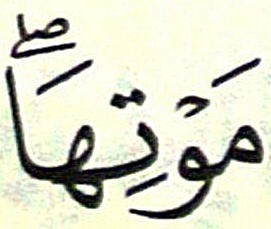 مَوْتِهَاۖ